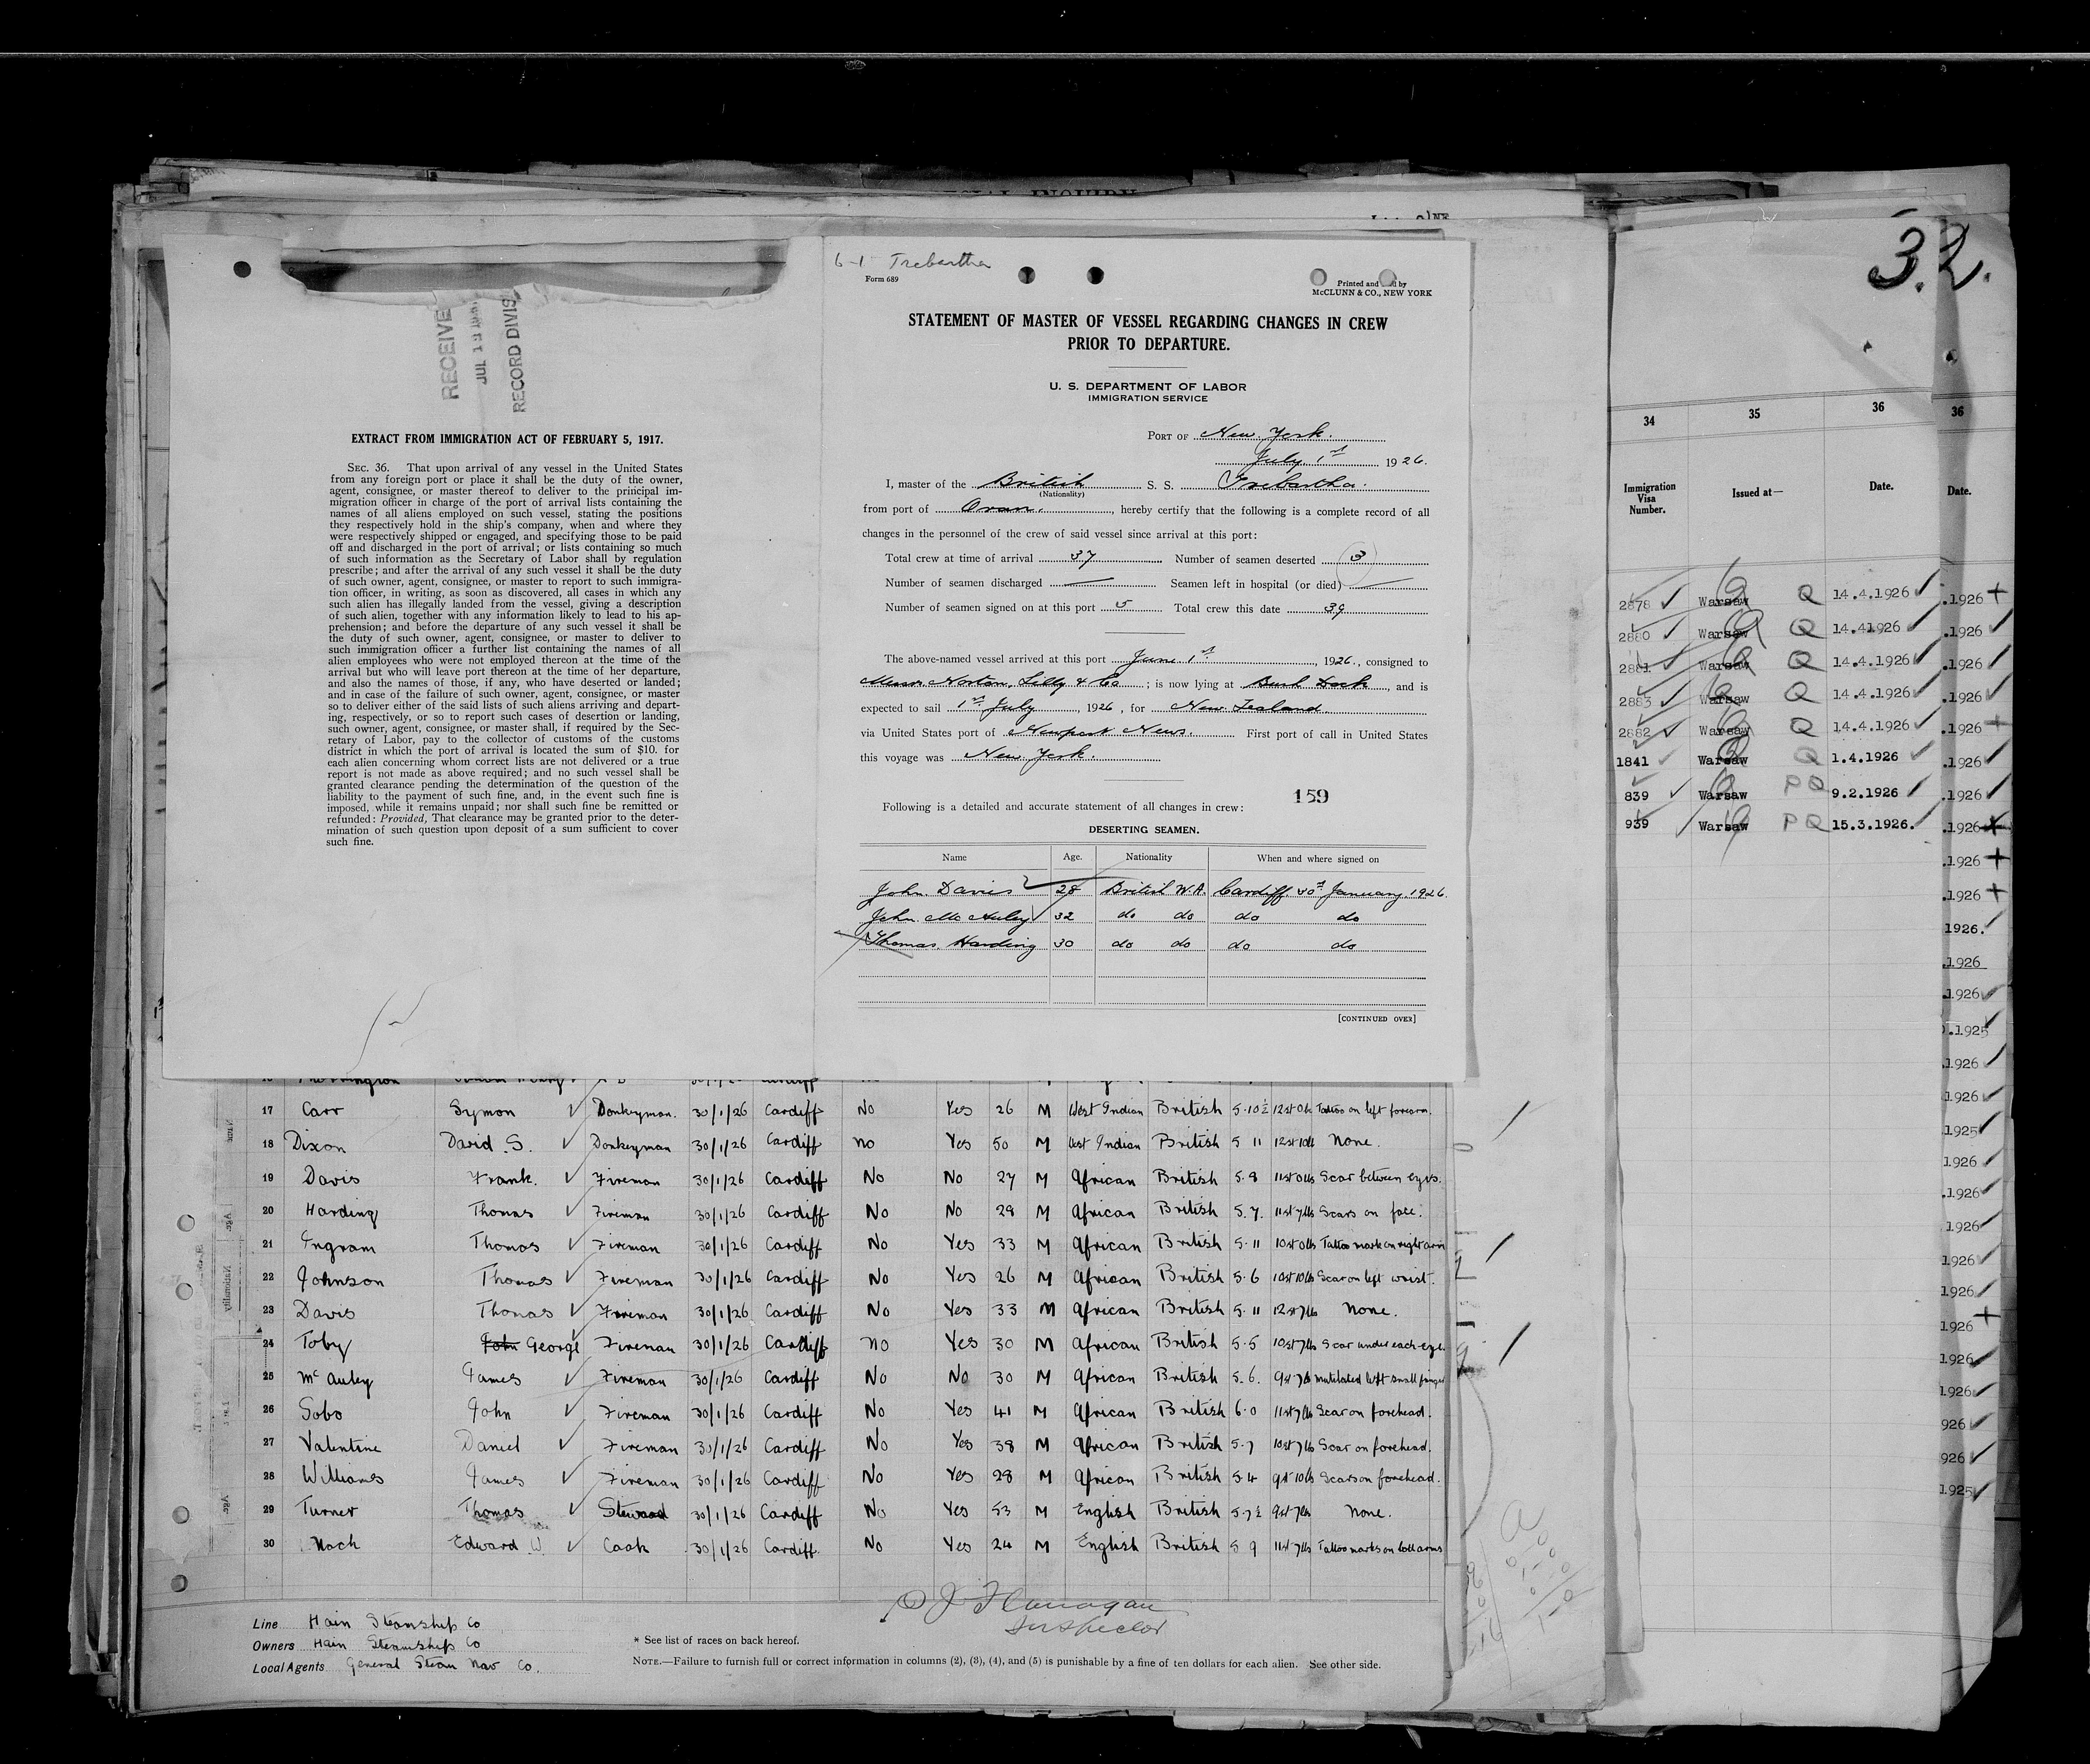 32.
6-1 Trebartha
Form 689
Printed and by
McCLUNN & CO., NEW YORK
STATEMENT OF MASTER OF VESSEL REGARDING CHANGES IN CREW
PRIOR TO DEPARTURE.
U. S. DEPARTMENT OF LABOR
IMMIGRATION SERVICE
PORT OF New York.
July 1st 1926.
I, master of the British S. S. Trebartha.
(Nationality)
from port of Oran., hereby certify that the following is a complete record of all
changes in the personnel of the crew of said vessel since arrival at this port:
Total crew at time of arrival 37 Number of seamen deserted 3
Number of seamen discharged — Seamen left in hospital (or died) —
Number of seamen signed on at this port 5 Total crew this date 39
The above-named vessel arrived at this port June 1st, 1926., consigned to
Messrs Norton, Lilly & Co; is now lying at Bush Dock, and is
expected to sail 1st July, 1926, for New Zealand.
via United States port of Newport News. First port of call in United States
this voyage was New York.
159
Following is a detailed and accurate statement of all changes in crew:
DESERTING SEAMEN.
Name Age. Nationality When and where signed on
John Davies 28 British W.A. Cardiff 30th January 1926.
John McAuley 32 do do do do
Thomas Harding 30 do do do do
[CONTINUED OVER]
RECEIVE
JUL
RECORD DIVIS
EXTRACT FROM IMMIGRATION ACT OF FEBRUARY 5, 1917.
SEC. 36. That upon arrival of any vessel in the United States
from any foreign port or place it shall be the duty of the owner,
agent, consignee, or master thereof to deliver to the principal im-
migration officer in charge of the port of arrival lists containing the
names of all aliens employed on such vessel, stating the positions
they respectively hold in the ship's company, when and where they
were respectively shipped or engaged, and specifying those to be paid
off and discharged in the port of arrival; or lists containing so much
of such information as the Secretary of Labor shall by regulation
prescribe; and after the arrival of any such vessel it shall be the duty
of such owner, agent, consignee, or master to report to such immigra-
tion officer, in writing, as soon as discovered, all cases in which any
such alien has illegally landed from the vessel, giving a description
of such alien, together with any information likely to lead to his ap-
prehension; and before the departure of any such vessel it shall be
the duty of such owner, agent, consignee, or master to deliver to
such immigration officer a further list containing the names of all
alien employees who were not employed thereon at the time of the
arrival but who will leave port thereon at the time of her departure,
and also the names of those, if any, who have deserted or landed;
and in case of the failure of such owner, agent, consignee, or master
so to deliver either of the said lists of such aliens arriving and depart-
ing, respectively, or so to report such cases of desertion or landing,
such owner, agent, consignee, or master shall, if required by the Sec-
retary of Labor, pay to the collector of customs of the customs
district in which the port of arrival is located the sum of $10. for
each alien concerning whom correct lists are not delivered or a true
report is not made as above required; and no such vessel shall be
granted clearance pending the determination of the question of the
liability to the payment of such fine, and, in the event such fine is
imposed, while it remains unpaid; nor shall such fine be remitted or
refunded: Provided, That clearance may be granted prior to the deter-
mination of such question upon deposit of a sum sufficient to cover
such fine.
17 Carr Symon Donkeyman. 30/1/26 Cardiff No Yes 26 M West Indian British 5·10½ 12st 0lb Tattoo on left forearm.
18 Dixon David S. Donkeyman 30/1/26 Cardiff no Yes 50 M West Indian British 5 11 12st 10lb None.
19 Davis Frank. Fireman 30/1/26 Cardiff No No 27 M African British 5.8 11st 0lbs Scar between eyes.
20 Harding Thomas Fireman 30/1/26 Cardiff No No 29 M African British 5.7. 11st 7lbs Scars on face.
21 Ingram Thomas Fireman 30/1/26 Cardiff No Yes 33 M African British 5·11 10st 0lbs Tattoo mark on right arm
22 Johnson Thomas Fireman 30/1/26 Cardiff No Yes 26 M African British 5·6 10st 10lbs Scar on left wrist.
23 Davis Thomas Fireman 30/1/26 Cardiff No Yes 33 M African British 5·11 12st 7lbs None.
24 Toby John George Fireman 30/1/26 Cardiff no Yes 30 M African British 5·5 10st 7lbs Scar under each eye.
25 McAuley James Fireman 30/1/26 Cardiff No No 30 M African British 5.6. 9st 7lb mutilated left small finger
26 Sobo John Fireman 30/1/26 Cardiff No Yes 41 M African British 6·0 11st 7lbs Scar on forehead.
27 Valentine Daniel Fireman 30/1/26 Cardiff No Yes 38 M African British 5·7 10st 7lbs Scar on forehead.
28 Williams James Fireman 30/1/26 Cardiff No Yes 28 M African British 5·4 9st 10lbs Scars on forehead.
29 Turner Thomas Steward 30/1/26 Cardiff No Yes 53 M English British 5·7½ 9st 7lbs None.
30 Nock Edward W. Cook 30/1/26 Cardiff. No Yes 24 M English British 5 9 11st 7lbs Tattoo marks on both arms
J Flanagan
Inspector
Line Hain Steamship Co
Owners Hain Steamship Co
Local Agents General Steam Nav Co.
* See list of races on back hereof.
NOTE.—Failure to furnish full or correct information in columns (2), (3), (4), and (5) is punishable by a fine of ten dollars for each alien. See other side.
34 35 36 36
Immigration Visa Number. Issued at— Date. Date.
2878 Warsaw Q 14.4.1926 .1926
2880 Warsaw Q 14.41926 .1926
2881 Warsaw Q 14.4.1926 .1926
2883 Warsaw Q 14.4.1926 .1926
2882 Warsaw Q 14.4.1926 .1926
1841 Warsaw Q 1.4.1926 .1926
839 Warsaw PQ 9.2.1926 .1926
939 Warsaw PQ 15.3.1926. .1926
.1926
.1926
1926.
.1926
.1926
.1925
.1926
.1926
.1925
.1926
.1926
.1926
.1926
.1926
.1926
.1926
.1926
926
.1926
.1925